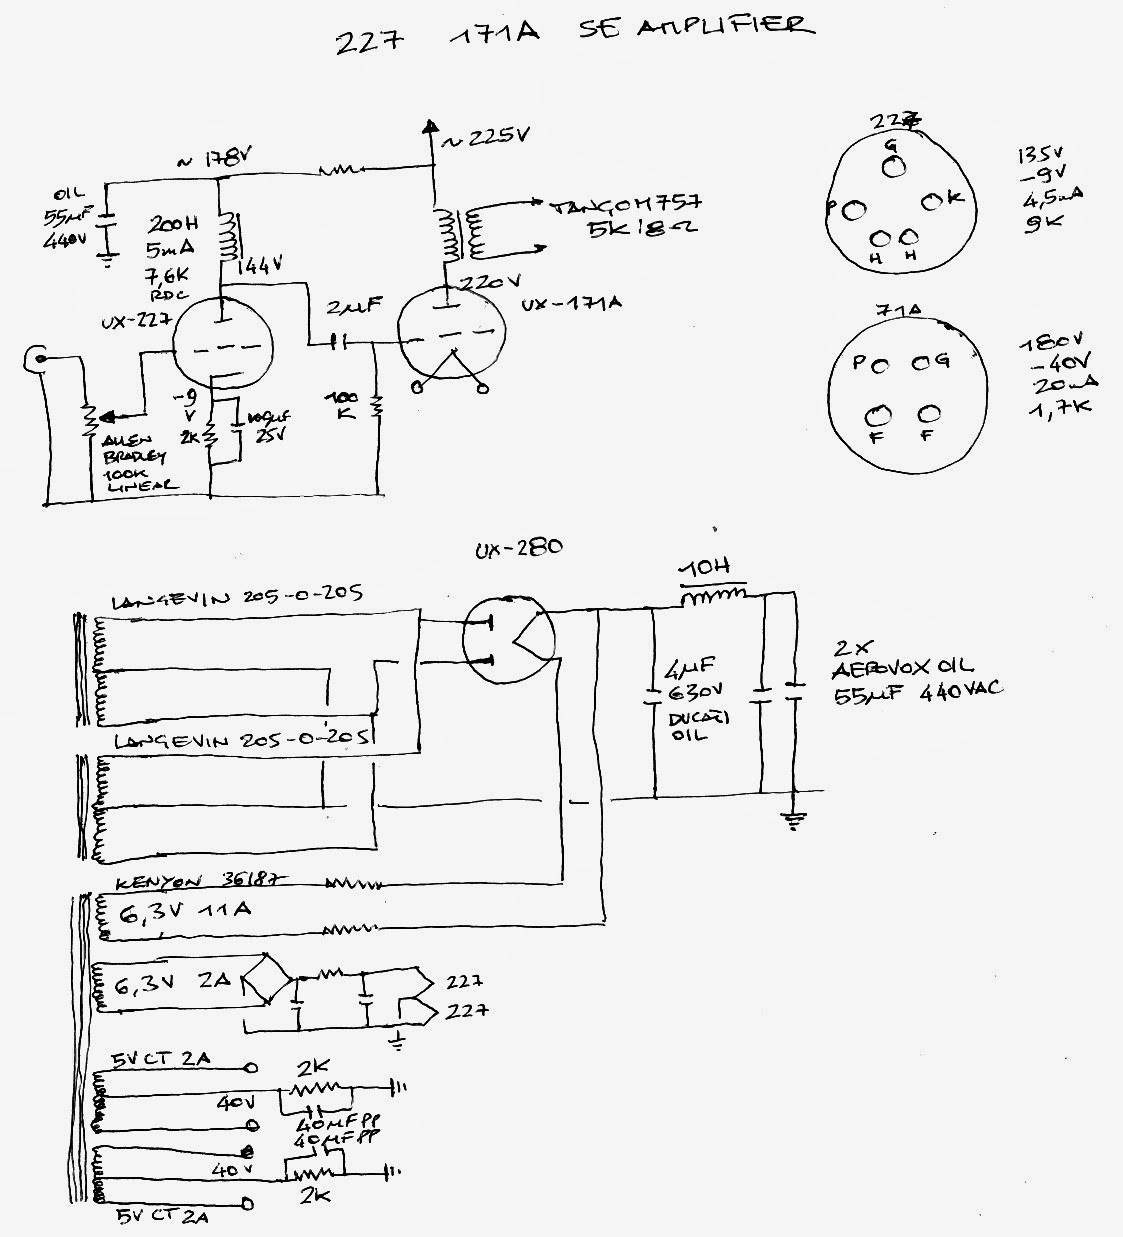 227 171A SE AMPLIFIER
~ 178V
~ 225V
OIL
55µF
440V
200H
5mA
7,6K
RDC
144V
TANGO M757
5K/8Ω
220V
UX-227
2µF
UX-171A
-9
V
2K
25V
100
K
ALLEN
BRADLEY
100K
LINEAR
227
G
P
K
H H
135V
-9V
4,5mA
9K
71A
P G
F F
180V
-40V
20mA
1,7K
UX-280
LANGEVIN 205-0-205
10H
4µF
630V
DUCATI
OIL
2X
AEROVOX OIL
55µF 440VAC
LANGEVIN 205-0-205
KENYON 36187
6,3V 11A
6,3V 2A
227
227
5V CT 2A
2K
40V
40µF PP
40µF PP
40V
2K
5V CT 2A